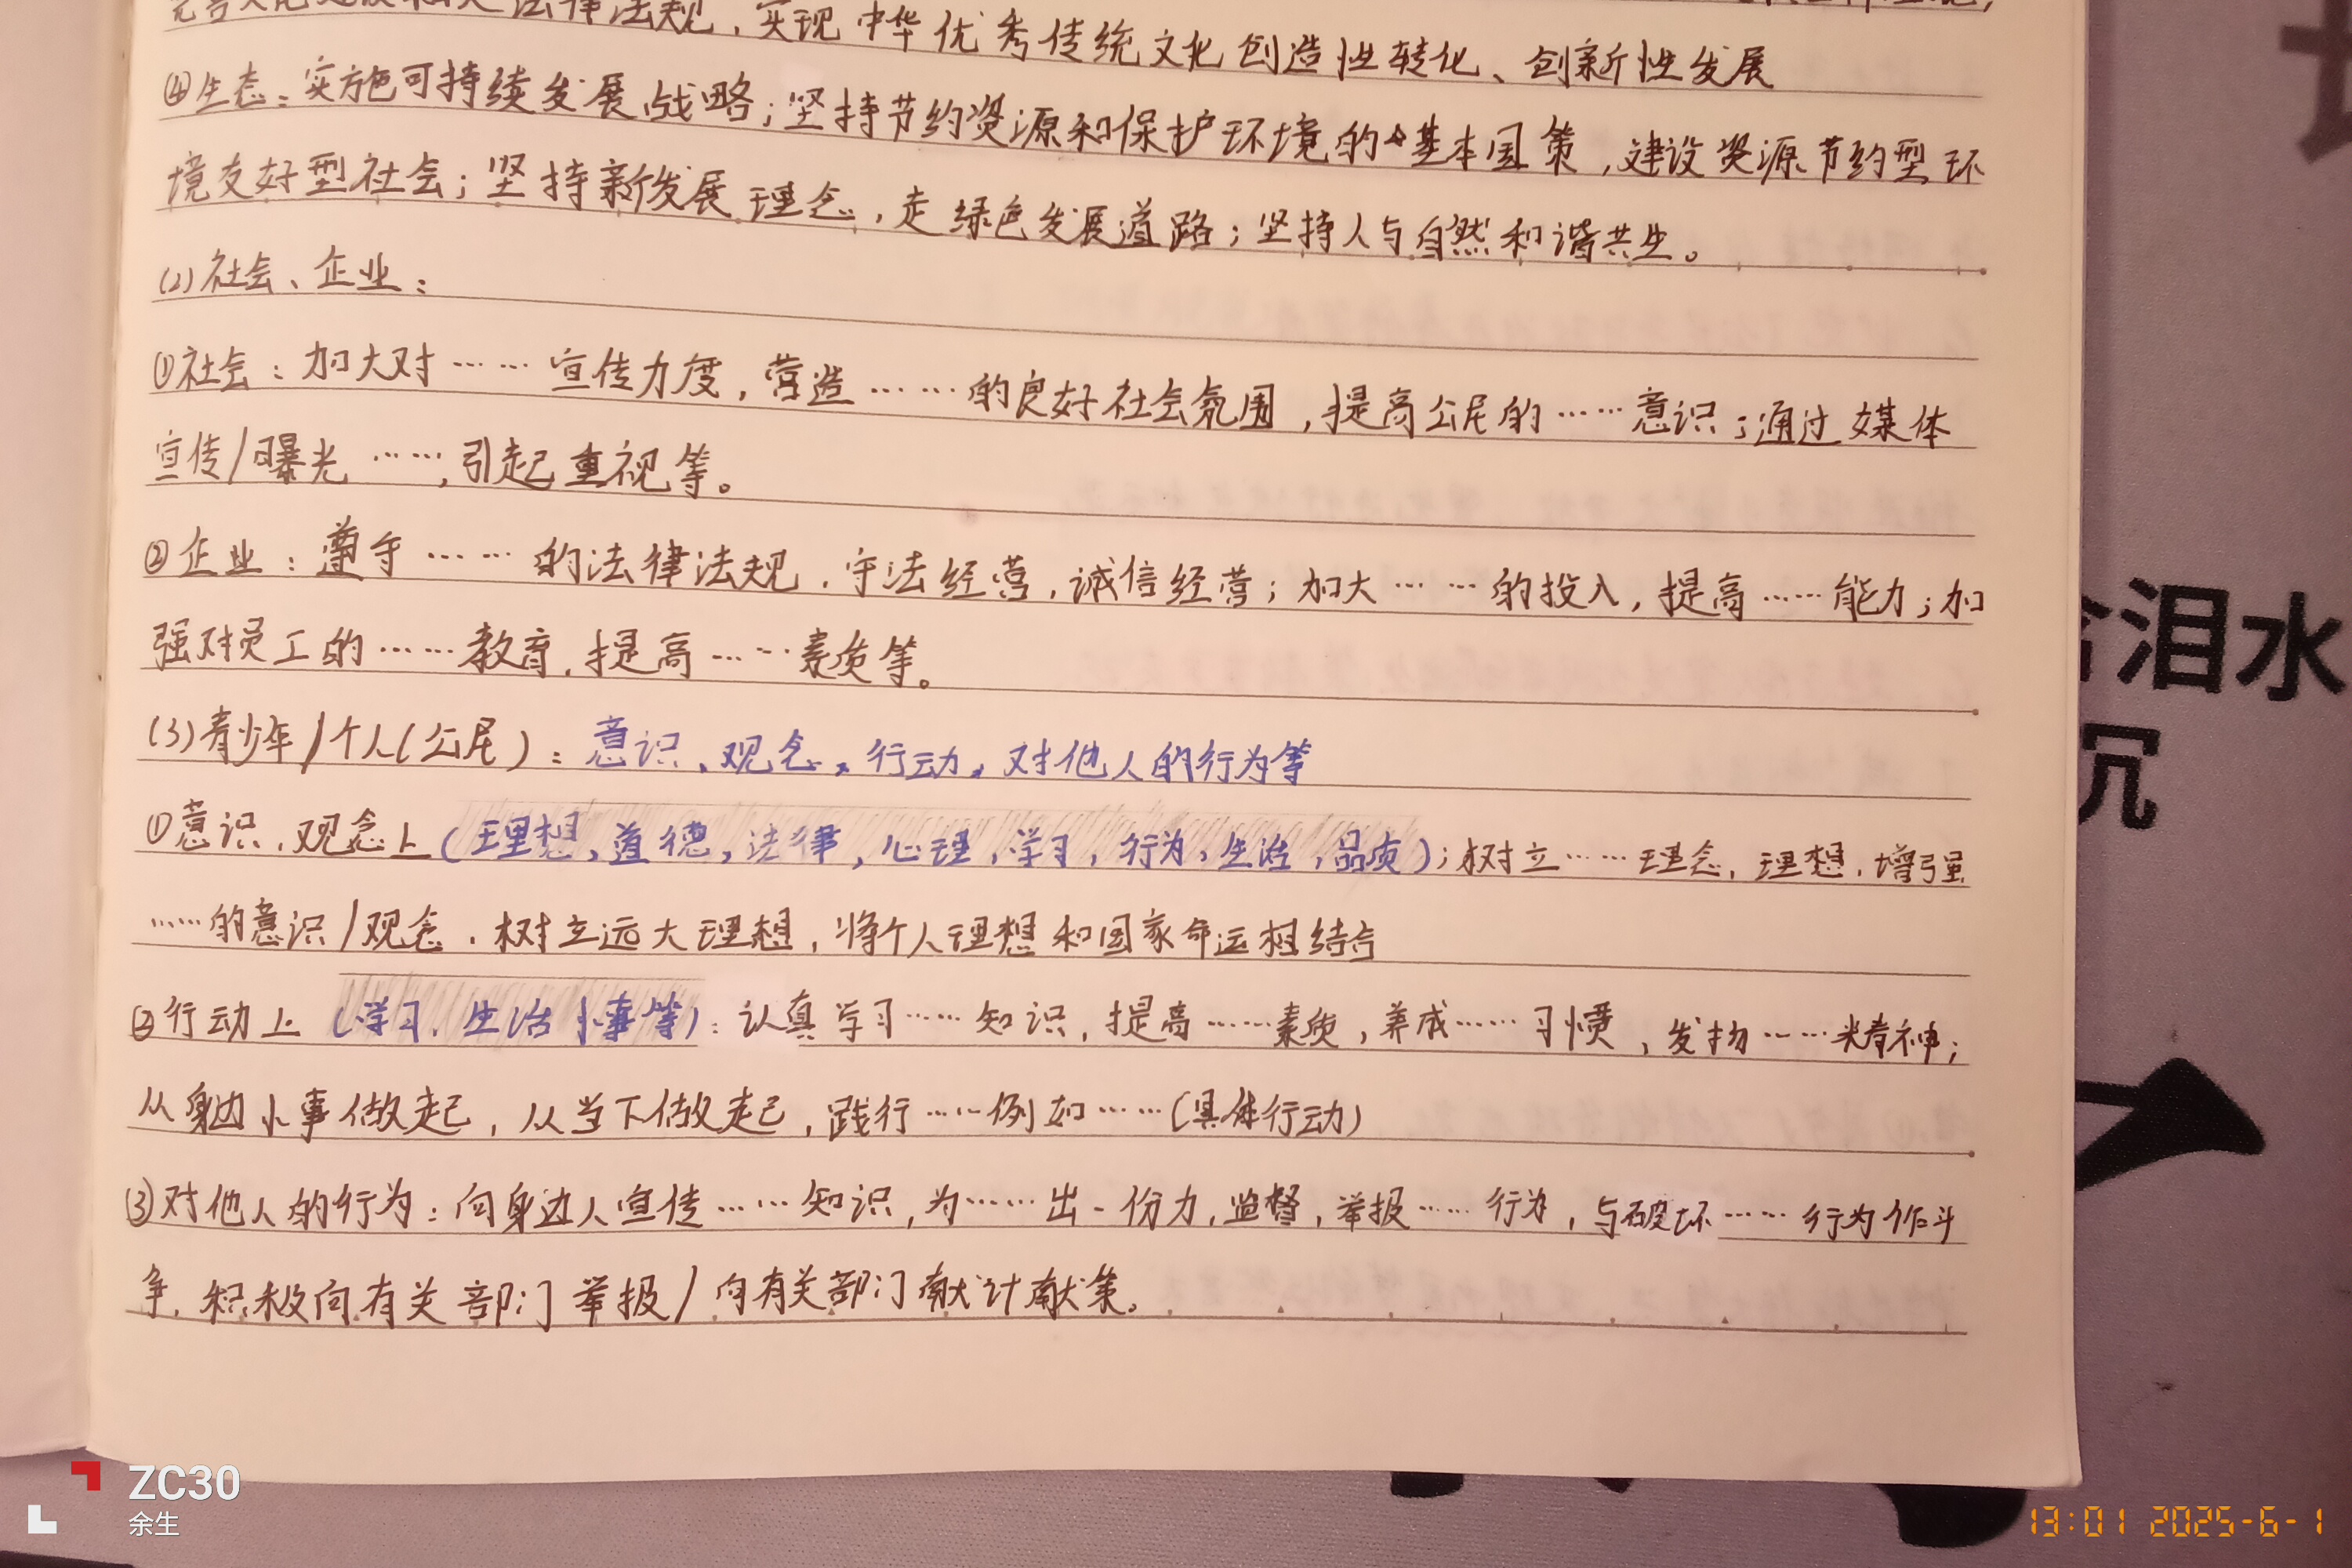 法律法规，实现中华优秀传统文化创造性转化、创新性发展
④生态：实施可持续发展战略；坚持节约资源和保护环境的基本国策，建设资源节约型环
境友好型社会；坚持新发展理念，走绿色发展道路；坚持人与自然和谐共生。
(2)社会、企业：
①社会：加大对……宣传力度，营造……的良好社会氛围，提高公民的……意识；通过媒体
宣传/曝光……，引起重视等。
②企业：遵守……的法律法规，守法经营，诚信经营；加大……的投入，提高……能力；加
强对员工的……教育，提高……素质等。
(3)青少年/个人(公民)：意识、观念、行动、对他人的行为等
①意识、观念上(理想，道德，法律，心理，学习，行为，生活，品质)；树立……理念，理想，增强
……的意识/观念，树立远大理想，将个人理想和国家命运相结合
②行动上(学习、生活小事等)：认真学习……知识，提高……素质，养成……习惯，发扬……精神；
从身边小事做起，从当下做起，践行……例如……(具体行动)
③对他人的行为：向身边人宣传……知识，为……出一份力，监督，举报……行为，与破坏……行为作斗
争，积极向有关部门举报/向有关部门献计献策。
泪水
沉
ZC30
余生
13:01 2025-6-1